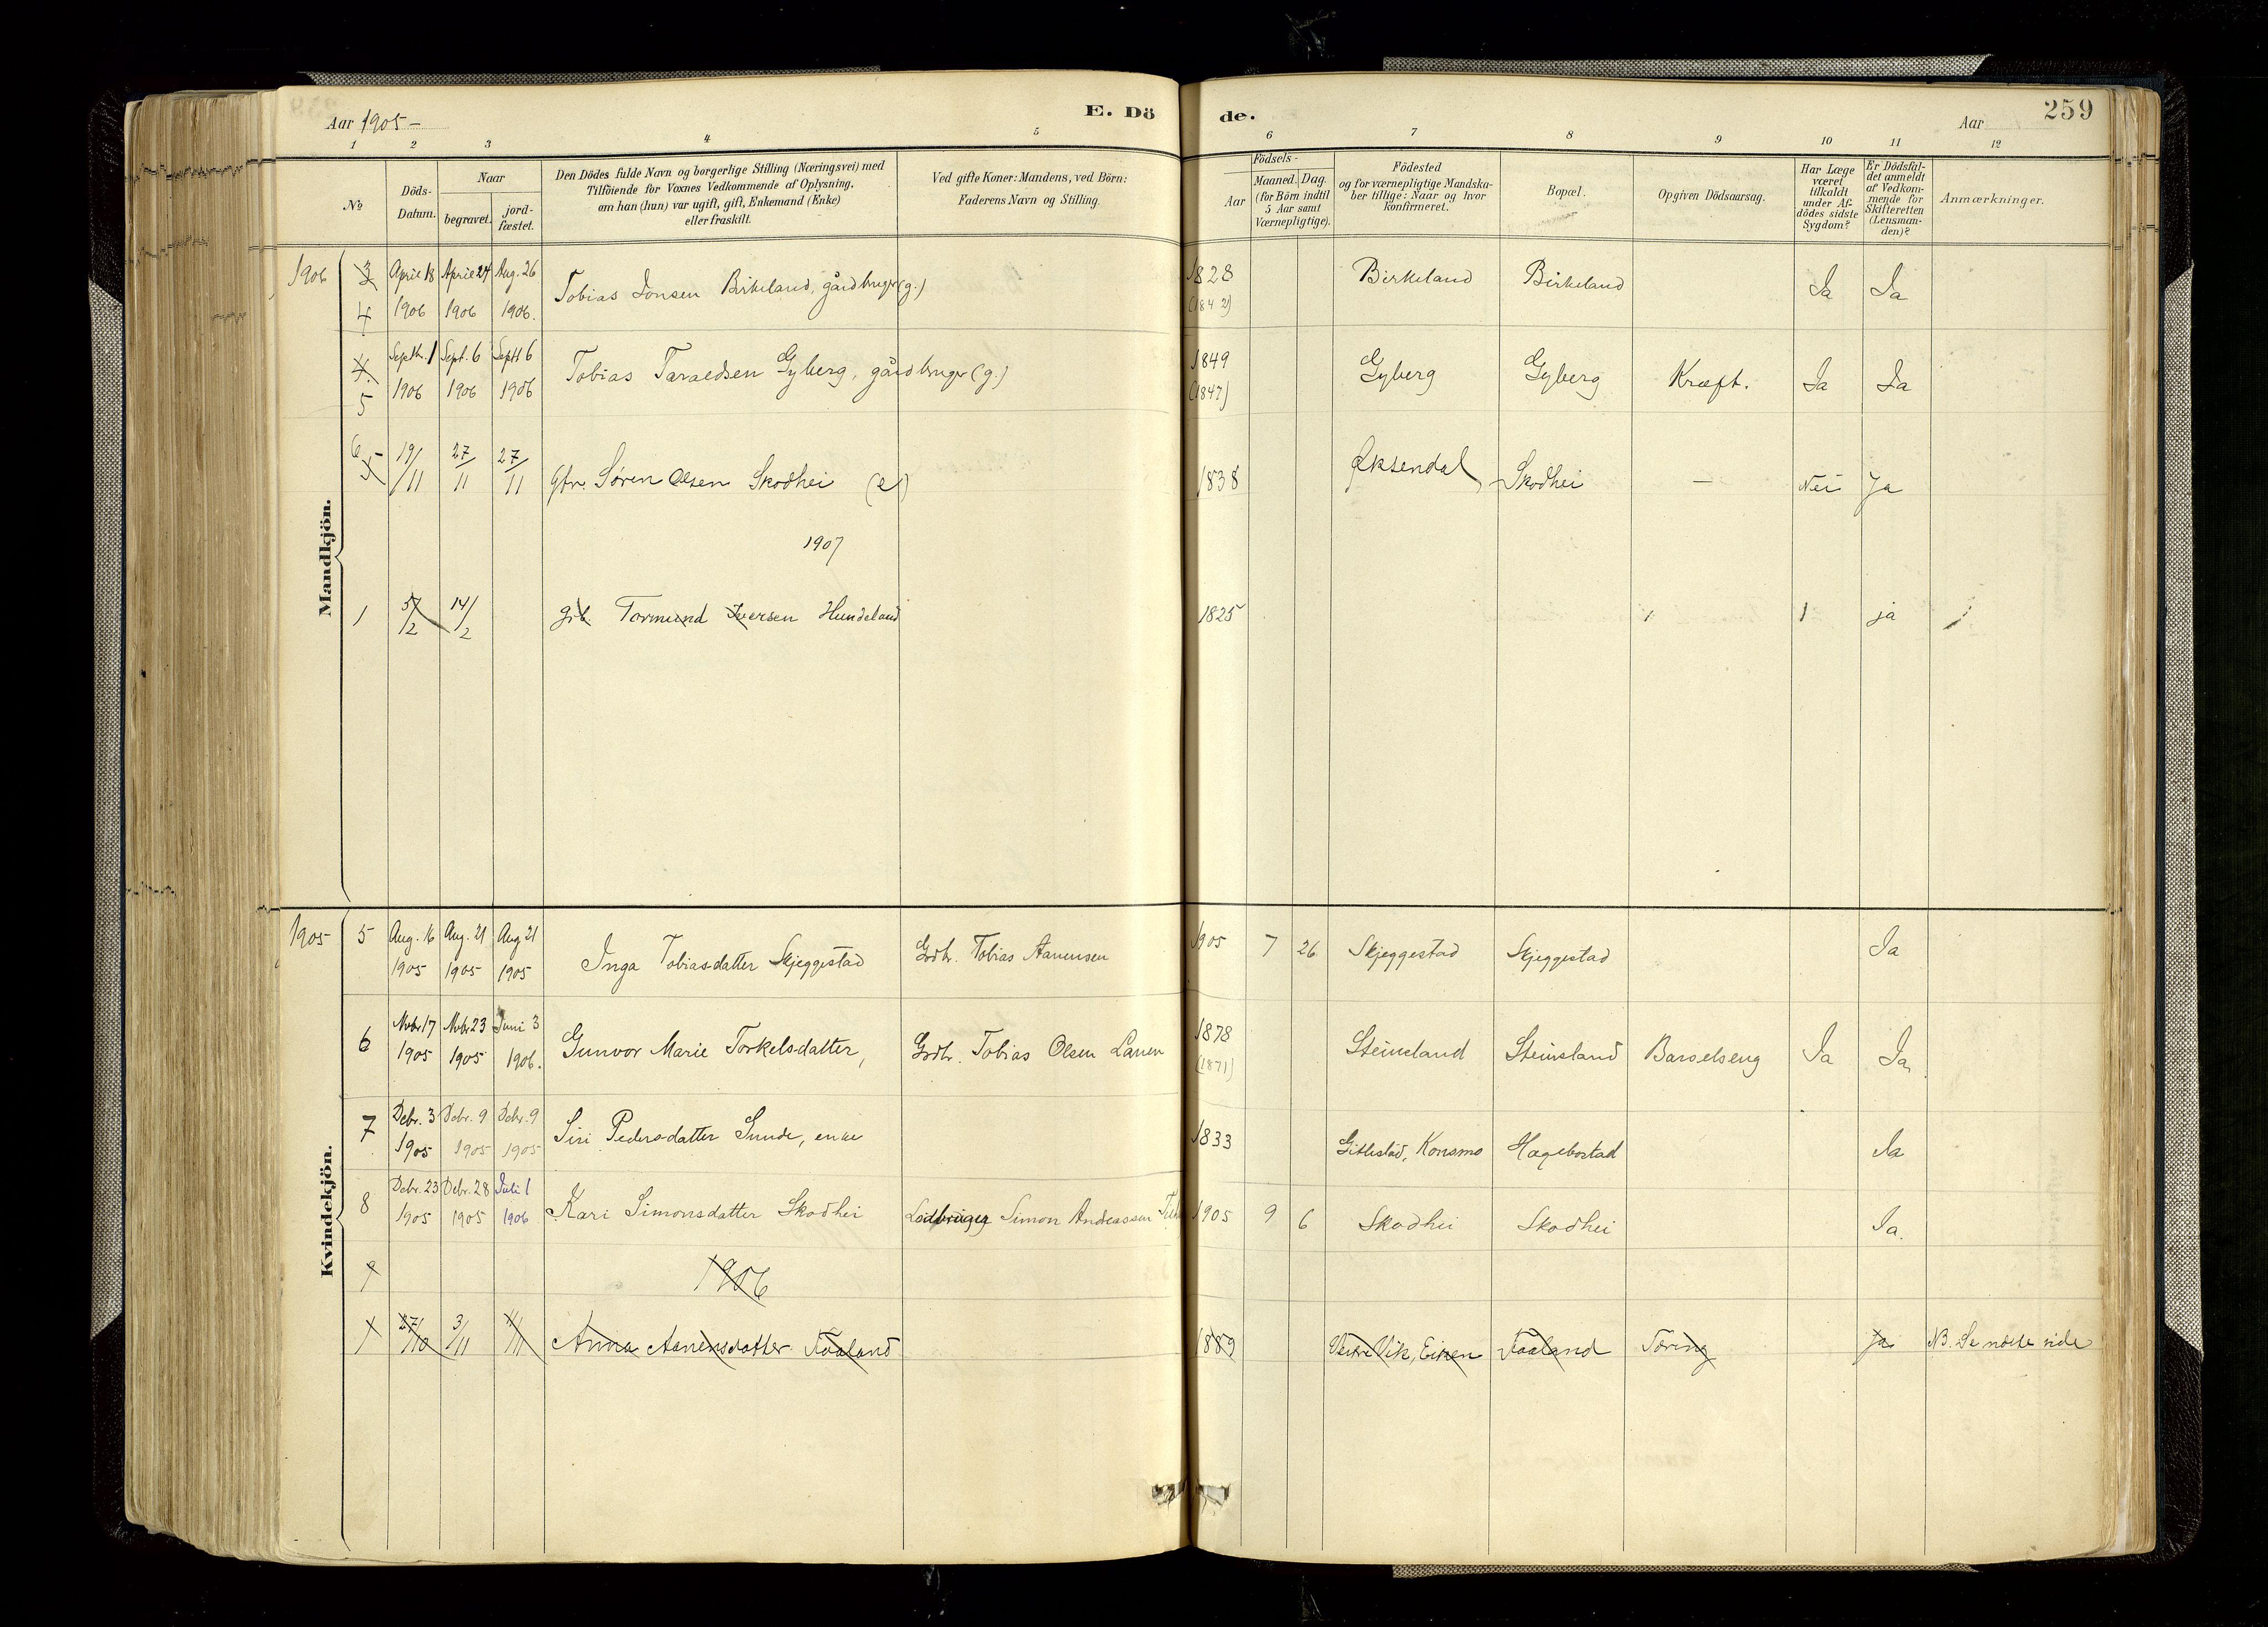 Aar 1905 –
E. Dö
de.
Aar
259
1 2 3 4 5 6 7 8 9 10 11 12
No
Döds-
Datum.
Naar
begravet.
jord-
fæstet.
Den Dödes fulde Navn og borgerlige Stilling (Næringsvei) med
Tilföiende for Voxnes Vedkommende af Oplysning.
om han (hun) var ugift, gift, Enkemand (Enke)
eller fraskilt.
Ved gifte Koner: Mandens, ved Börn:
Faderens Navn og Stilling.
Födsels-
Aar
Maaned. Dag.
(for Börn indtil
5 Aar samt
Værnepligtige).
Födested
og for værnepligtige Mandska-
ber tillige: Naar og hvor
konfirmeret.
Bopæl.
Opgiven Dödsaarsag.
Har Læge
været
tilkaldt
under Af-
dödes sidste
Sygdom?
Er Dödsfal-
det anmeldt
af Vedkom-
mende for
Skifteretten
(Lensman-
den)?
Anmærkninger.
Mandkjön.
1906 3 April 18 April 24 Aug. 26 Tobias Jonsen Birkeland, gårdbruger (g.) 1828 Birkeland Birkeland Ja Ja
4 1906 1906 1906. (1842)
4. Septbr. 1 Sept. 6 Septb 6 Tobias Taraldsen Gyberg, gårdbruger (g.) 1849 Gyberg Gyberg Kræft. Ja Ja
5 1906 1906 1906 (1847)
6 5 19/11 27/11 27/11 Gbr. Søren Olsen Skodhei (e) 1838 Øksendal Skodhei – Nei Ja
1907
1 5/2 14/2 grb. Tormund Iversen Hundeland 1825 ja
Kvindekjön.
1905 5 Aug. 16 Aug. 21 Aug 21 Inga Tobiasdatter Skjeggestad Grdbr. Tobias Aanensen 1905 7 26 Skjeggestad Skjeggestad Ja
1905 1905 1905
6 Novbr 17 Novbr 23 Juni 3 Gunvor Marie Torkelsdatter, Grdbr. Tobias Olsen Lauen 1878 Steinsland Steinsland Barselseng Ja Ja
1905 1905 1906. (1871)
7 Debr. 3 Debr. 9 Debr. 9 Siri Pedersdatter Sunde, enke 1833 Gitlestad, Konsmo Hægebostad Ja
1905 1905 1905
8 Debr. 23 Debr. 28 Juli 1 Kari Simonsdatter Skodhei Simon Andreassen 1905 9 6 Skodhei Skodhei Ja.
1905 1905 1906
9 1906
1 27/10 3/11 4/11 Anna Aanensdatter Faaland 1889 Vestre Vik, Eiken Faaland Tæring Ja NB. Se næste side